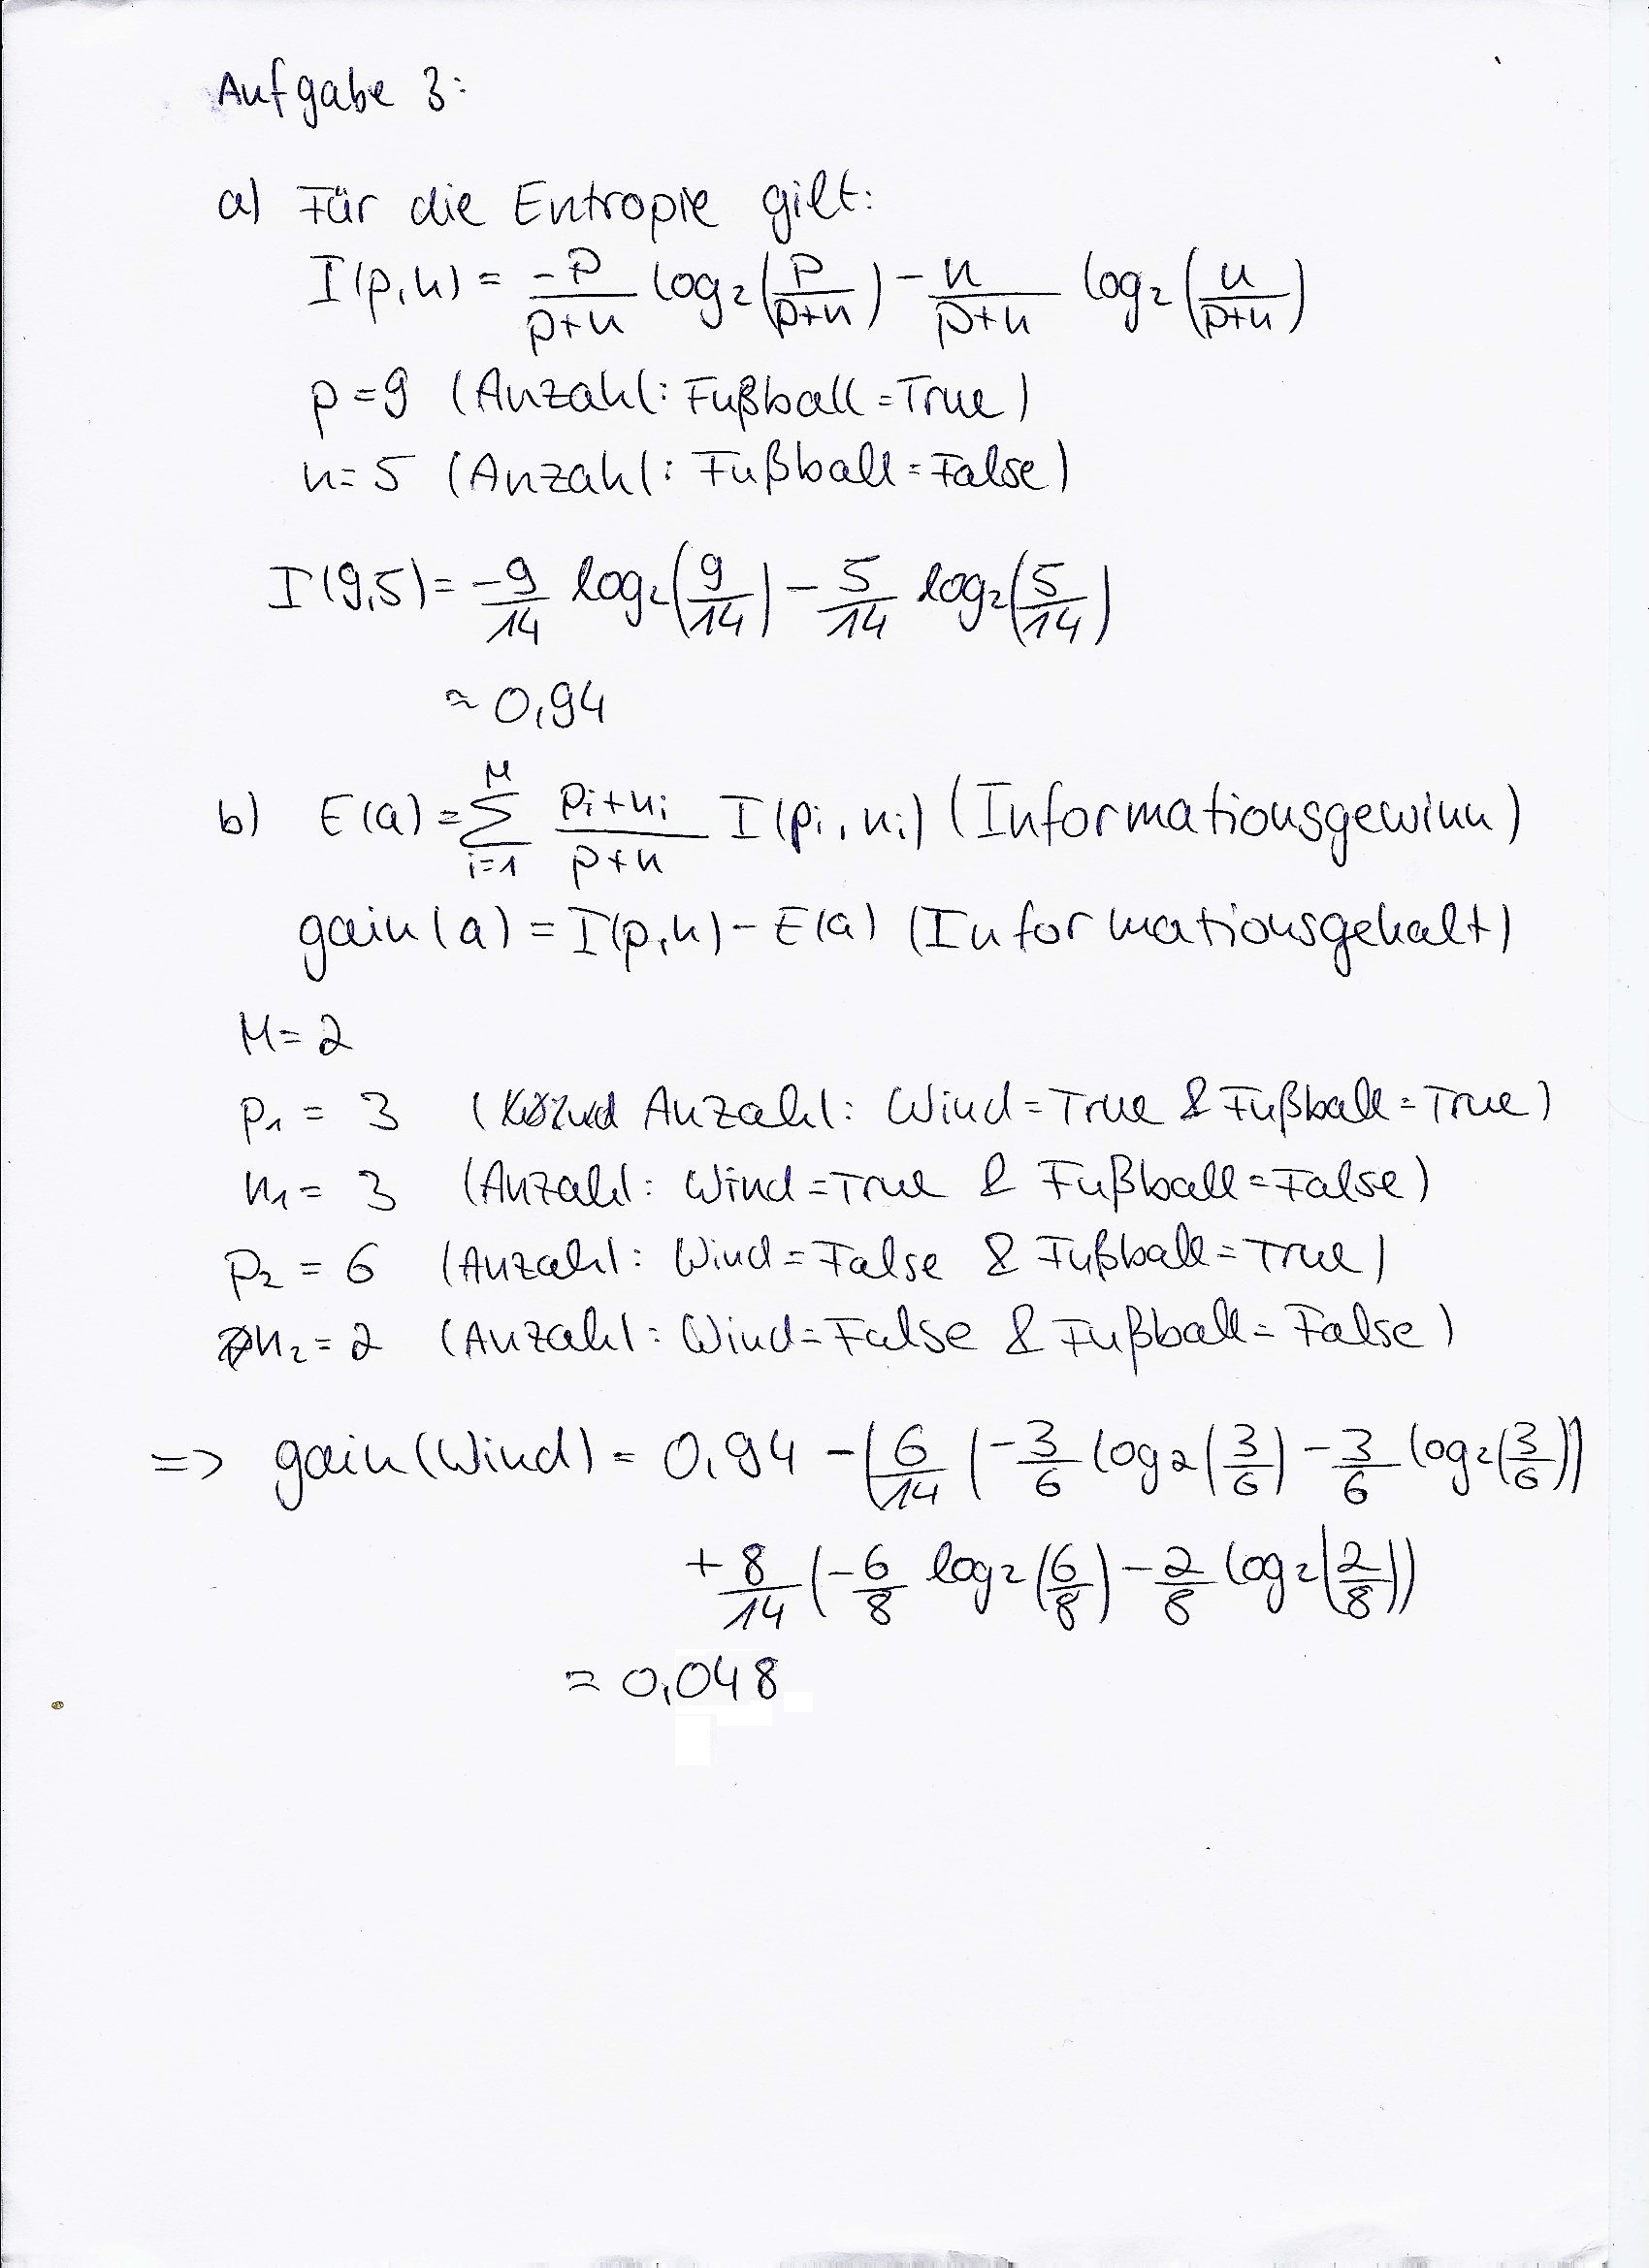 Aufgabe 3:
a) Für die Entropie gilt:
I(p,n) = -p/(p+n) log₂(p/(p+n)) - n/(p+n) log₂(n/(p+n))
p=9 (Anzahl: Fußball=True)
n=5 (Anzahl: Fußball=False)
I(9,5) = -9/14 log₂(9/14) - 5/14 log₂(5/14)
≈ 0,94
b) E(a) = Σ_{i=1}^{M} (pᵢ+nᵢ)/(p+n) I(pᵢ,nᵢ) (Informationsgewinn)
gain(a) = I(p,n) - E(a) (Informationsgehalt)
M=2
p₁ = 3 (Anzahl: Wind=True & Fußball=True)
n₁ = 3 (Anzahl: Wind=True & Fußball=False)
p₂ = 6 (Anzahl: Wind=False & Fußball=True)
n₂ = 2 (Anzahl: Wind=False & Fußball=False)
=> gain(Wind) = 0,94 - (6/14 (-3/6 log₂(3/6) - 3/6 log₂(3/6))
+ 8/14 (-6/8 log₂(6/8) - 2/8 log₂(2/8))
≈ 0,048